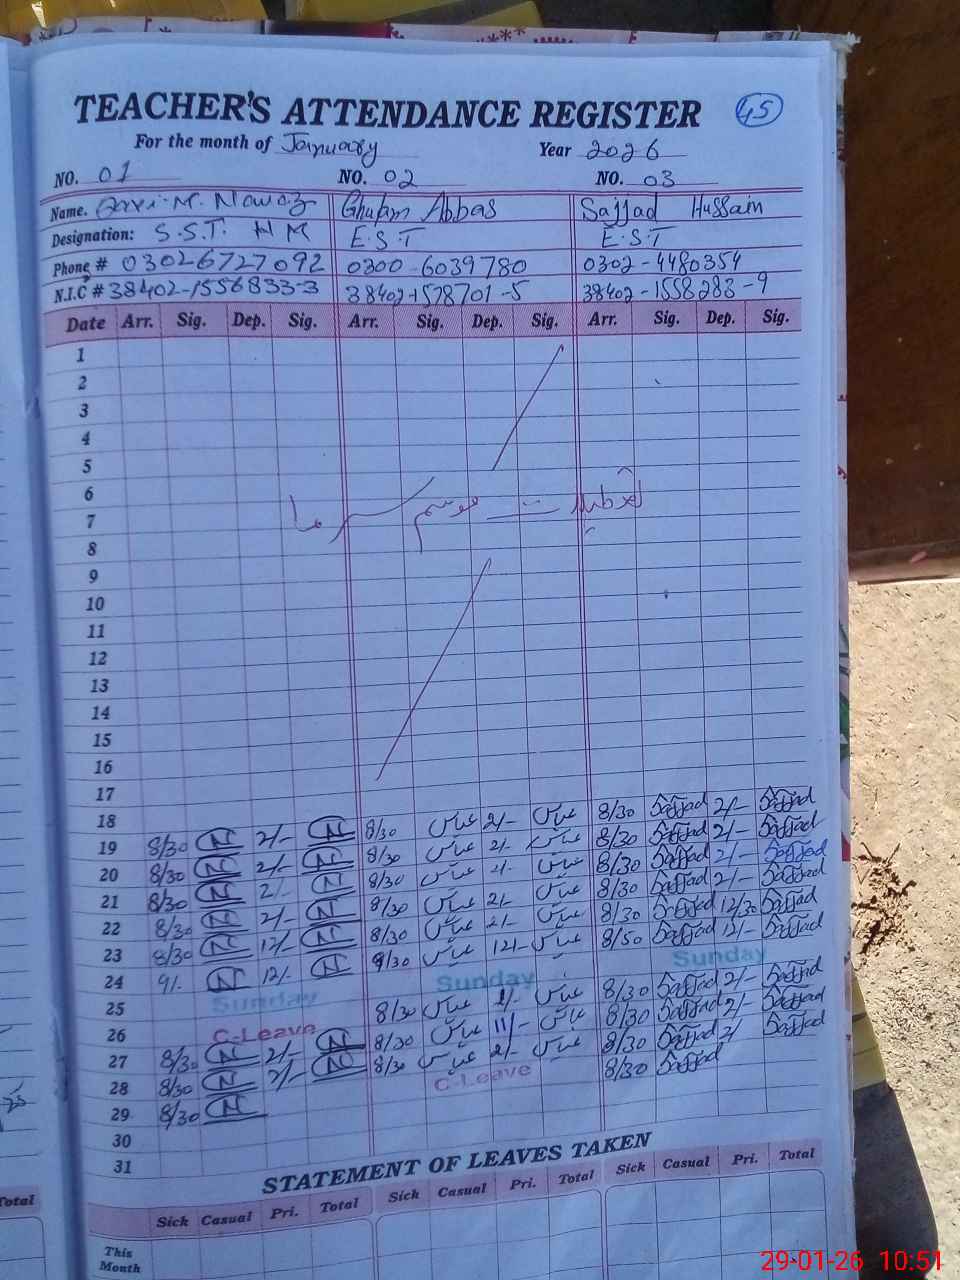 TEACHER'S ATTENDANCE REGISTER 45
For the month of January Year 2026
NO. 01 NO. 02 NO. 03
Name. Qazi M. Nawaz Ghulam Abbas Sajjad Hussain
Designation: S.S.T. HM E.S.T E.S.T
Phone # 03026727092 0300-6039780 0302-4480354
N.I.C # 38402-1556833-3 38402-1578701-5 38402-1558283-9
Date Arr. Sig. Dep. Sig. Arr. Sig. Dep. Sig. Arr. Sig. Dep. Sig.
1
2
3
4
5
6
تعطیلات موسم سرما
7
8
9
10
11
12
13
14
15
16
17
18
19 8/30 N 2/- N 8/30 عباس 2/- عباس 8/30 Sajjad 2/- Sajjad
20 8/30 N 2/- N 8/30 عباس 2/- عباس 8/30 Sajjad 2/- Sajjad
21 8/30 N 2/- N 8/30 عباس 2/- عباس 8/30 Sajjad 2/- Sajjad
22 8/30 N 2/- N 8/30 عباس 2/- عباس 8/30 Sajjad 2/- Sajjad
23 8/30 N 12/- N 8/30 عباس 2/- عباس 8/30 Sajjad 12/30 Sajjad
24 9/- N 12/- N 8/30 عباس 12/- عباس 8/50 Sajjad 12/- Sajjad
25 Sunday Sunday Sunday
26 C-Leave 8/30 عباس 2/- عباس 8/30 Sajjad 2/- Sajjad
27 8/30 N 2/- N 8/30 عباس 11/- عباس 8/30 Sajjad 2/- Sajjad
28 8/30 N 2/- N 8/30 عباس 2/- عباس 8/30 Sajjad 2/ Sajjad
29 8/30 N C-Leave 8/30 Sajjad
30
31
STATEMENT OF LEAVES TAKEN
Total Sick Casual Pri. Total Sick Casual Pri. Total Sick Casual Pri. Total
This
Month
29-01-26 10:51